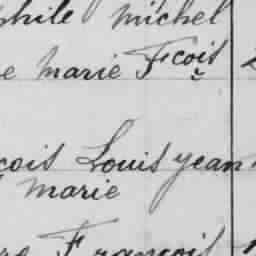 phile michel
e marie Fçois
çois Louis jean
marie
François